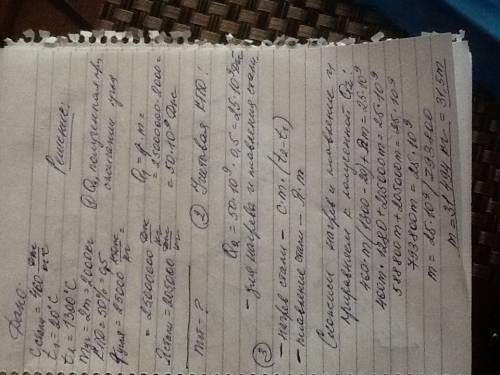 Дано:
Cстали = 460 Дж/кг
t₁ = 20°C
t₂ = 1300°C
mуг = 2т = 2000кг
КПД = 50% = 0,5
qугля = 25000 кДж/кг
= 25000000 Дж/кг
λстали = 205000 Дж/кг
mст - ?
Решение
① Q₁, полученная при
сгорании угля
Q₁ = q·m =
= 25000000·2000 =
= 50·10⁹ Дж
② Учитывая КПД:
Q₂ = 50·10⁹·0,5 = 25·10⁹ Дж
- для нагрева и плавления стали.
③
- нагрев стали - c·m·(t₂-t₁)
- плавление стали - λ·m
Сложим нагрев и плавление и
приравняем к полученной Q₂:
460·m(1300-20)+λm = 25·10⁹
460m·1280+205000m = 25·10⁹
588800m+205000m = 25·10⁹
793800m = 25·10⁹
m = 25·10⁹/793800
m = 31494 кг = 31,5т